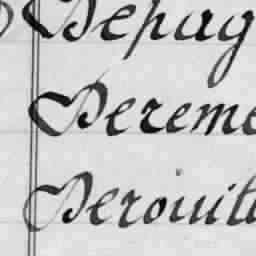 Depag
Dereme
Derouil